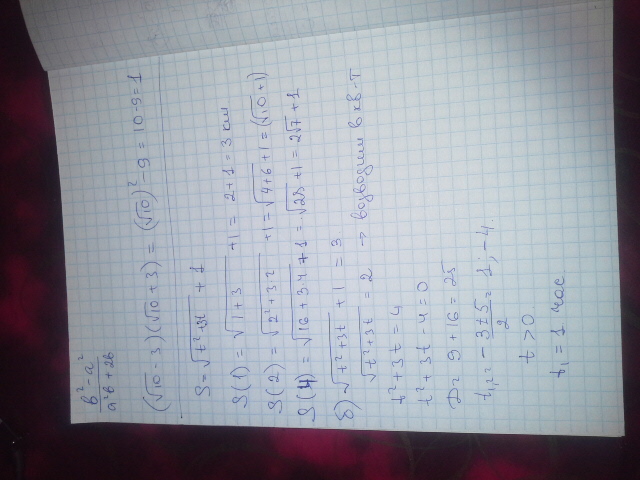 b² - a² / a²b + 2b
(√10 - 3)(√10 + 3) = (√10)² - 9 = 10 - 9 = 1
S = √(t² + 3t) + 1
S(1) = √(1 + 3) + 1 = 2 + 1 = 3 км
S(2) = √(2² + 3·2) + 1 = √(4 + 6) + 1 = (√10 + 1)
S(4) = √(16 + 3·4) + 1 = √28 + 1 = 2√7 + 1
б) √(t² + 3t) + 1 = 3
√(t² + 3t) = 2 → возводим в кв-т
t² + 3t = 4
t² + 3t - 4 = 0
D = 9 + 16 = 25
t₁,₂ = -3 ± 5 / 2 = 1; -4
t > 0
t₁ = 1 час